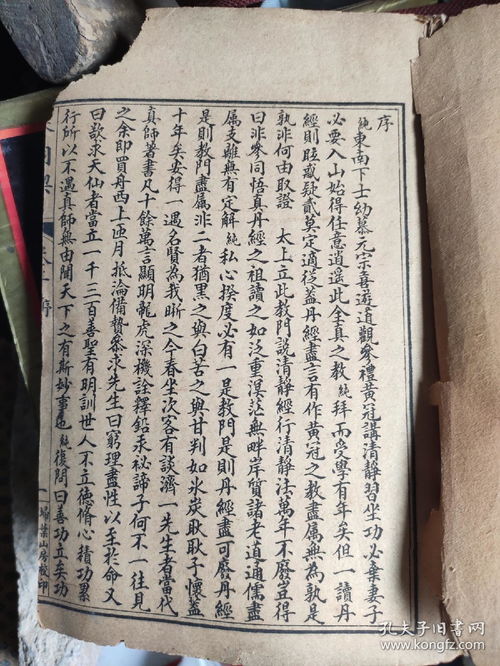 序
純東南下士幼慕元宗喜遊道觀參禮黃冠講清靜習坐功必棄妻子
必要入山始得任意逍遥此全真之教純拜而受學有年矣但一讀丹
經則眩惑疑貳莫定適從蓋丹經盡言有作黃冠之教盡屬無為孰是
孰非何由取證 太上立此教門說清靜經行清靜法萬年不廢豈得
曰非參同悟真丹經之祖讀之如泛重溟茫無畔岸質諸老道通儒盡
屬支離無有定解純私心揆度必有一是教門是則丹經盡可廢丹經
是則教門盡屬非二者猶黑之與白苦之與甘判如氷炭耿耿子懷蓋
十年矣安得一遇名賢為我晰之今春坐次客有談濟一先生者當代
真師著書凡十餘萬言顯明龍虎深機詮釋鉛汞祕諦子何不一往見
之余即買舟西上匝月抵淪備贄參求先生曰窮理盡性以至於命又
曰欲求天仙者當立一千三百善聖有明訓世人不立德脩心積功累
行所以不遇真師無由聞天下之有斯妙事也純復問曰善功立矣功
序
一
掃葉山房校印
孔夫子旧书网
www.kongfz.com